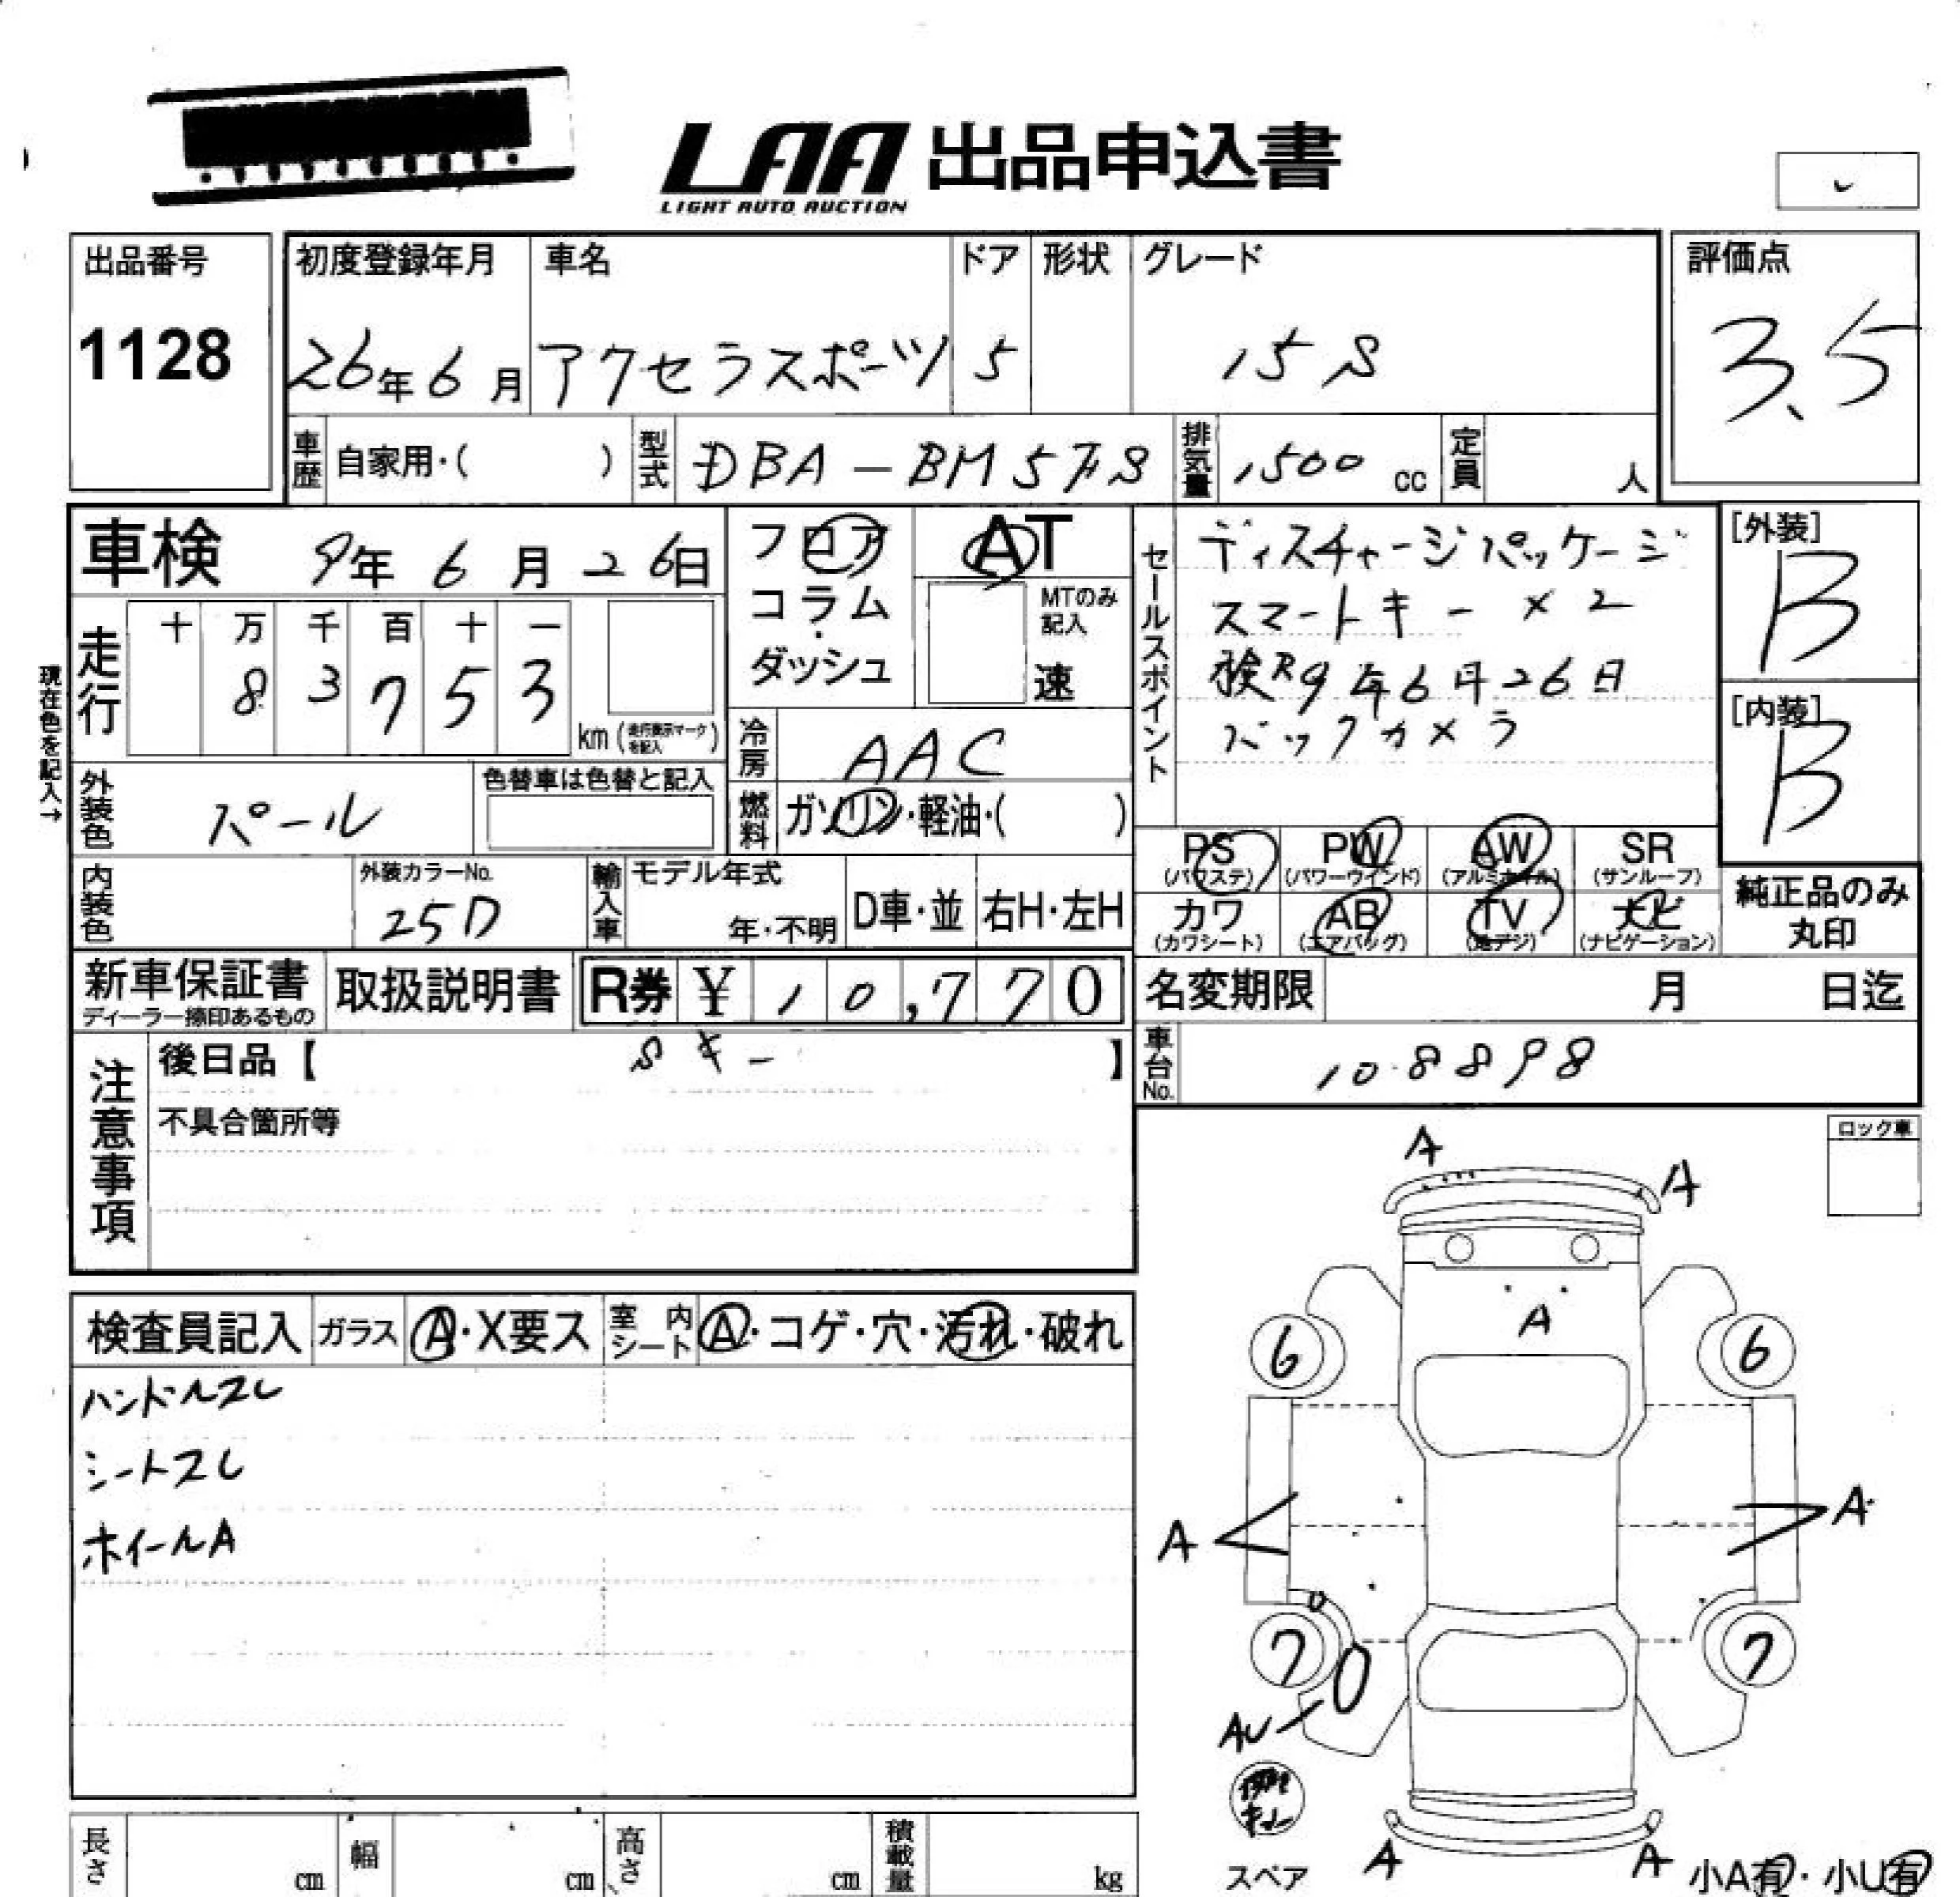 LAA 出品申込書
LIGHT AUTO AUCTION
出品番号
1128
初度登録年月
26年6月
車名
アクセラスポーツ
ドア
5
形状
グレード
15S
評価点
3.5
車歴 自家用・( )
型式 DBA-BM5FS
排気量 1500 cc
定員 人
車検 9年6月26日
フロア
コラム
・
ダッシュ
AT
MTのみ
記入
速
セールスポイント
ディスチャージパッケージ
スマートキー×2
検R9年6月26日
バックカメラ
[外装]
B
[内装]
B
現在色を記入→
走行
十 万 千 百 十 一
8 3 7 5 3
km(走行表示マークを記入)
冷房 AAC
外装色 パール
色替車は色替と記入
燃料 ガソリン・軽油・( )
内装色
外装カラーNo.
25D
輸入車
モデル年式
年・不明
D車・並
右H・左H
PS
(パワステ)
PW
(パワーウインド)
AW
(アルミホイル)
SR
(サンルーフ)
カワ
(カワシート)
AB
(エアバッグ)
TV
(地デジ)
ナビ
(ナビゲーション)
純正品のみ
丸印
新車保証書
ディーラー捺印あるもの
取扱説明書
R券 ¥ 10,770
名変期限 月 日迄
車台No. 108898
注意事項
後日品【 Sキー 】
不具合箇所等
ロック車
検査員記入
ガラス A・X要ス
室内シート A・コゲ・穴・汚れ・破れ
ハンドルスレ
シートスレ
ホイールA
A
A
A
6
6
A
A
7
7
AU
A
A
スペア
小A有・小U有
長さ cm
幅 cm
高さ cm
積載量 kg